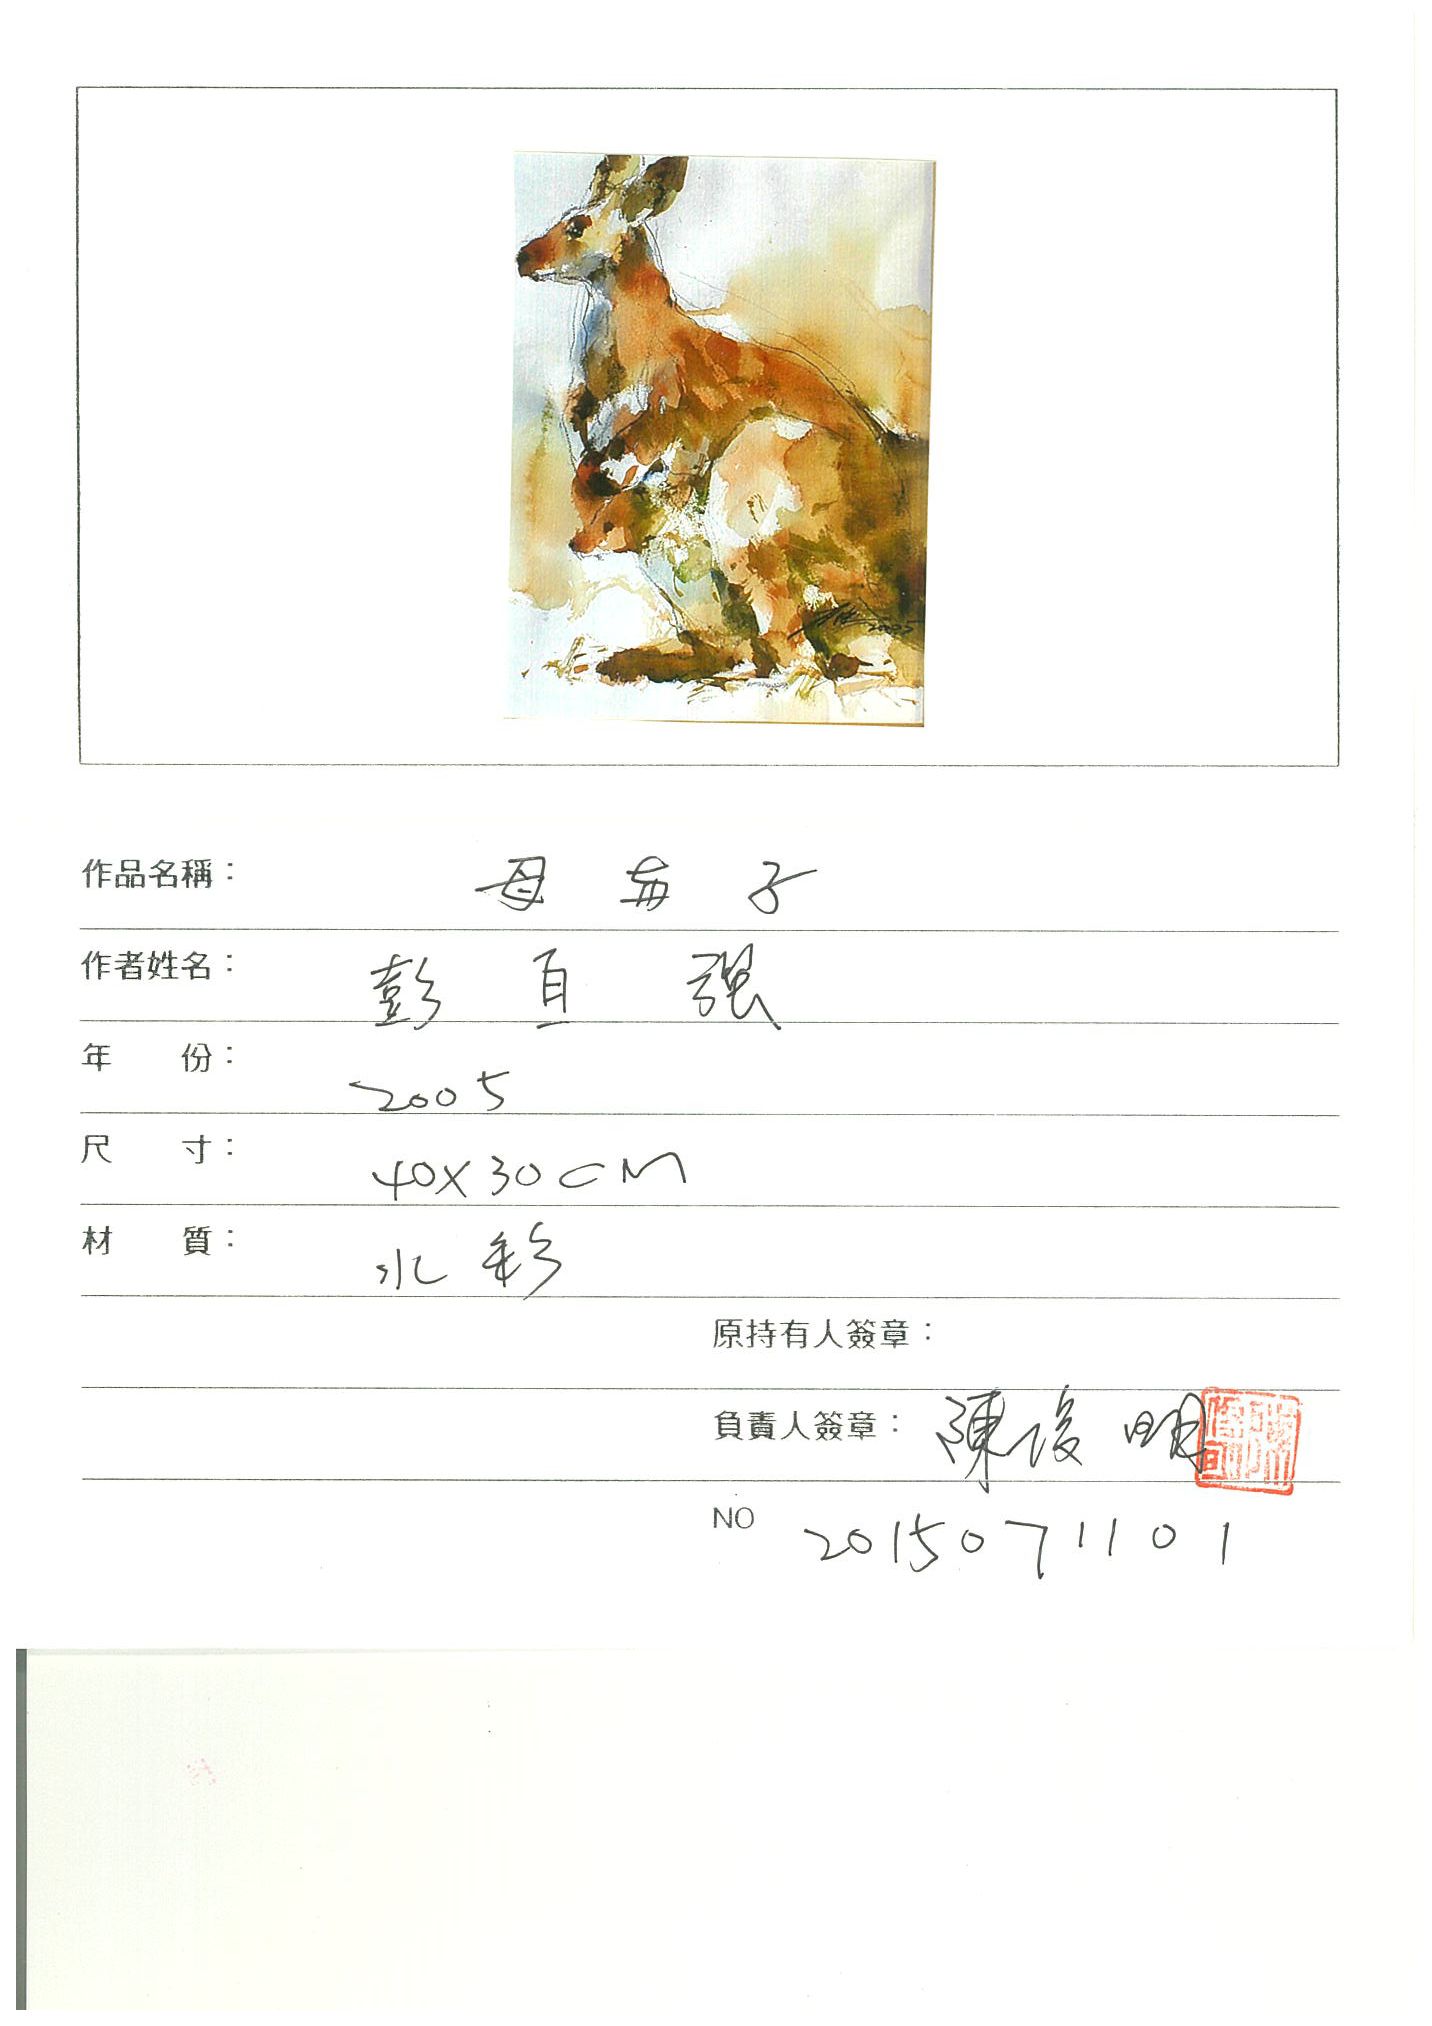 2005
作品名稱： 母與子
作者姓名： 彭 強
年 份： 2005
尺 寸： 40X30CM
材 質： 水彩
原持有人簽章：
負責人簽章： 陳俊明
NO 2015071101